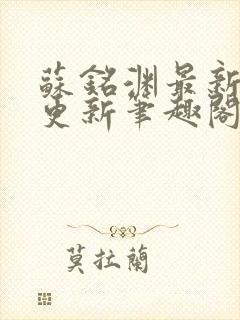 蘇銘淵最新
更新筆趣閣
莫拉蘭